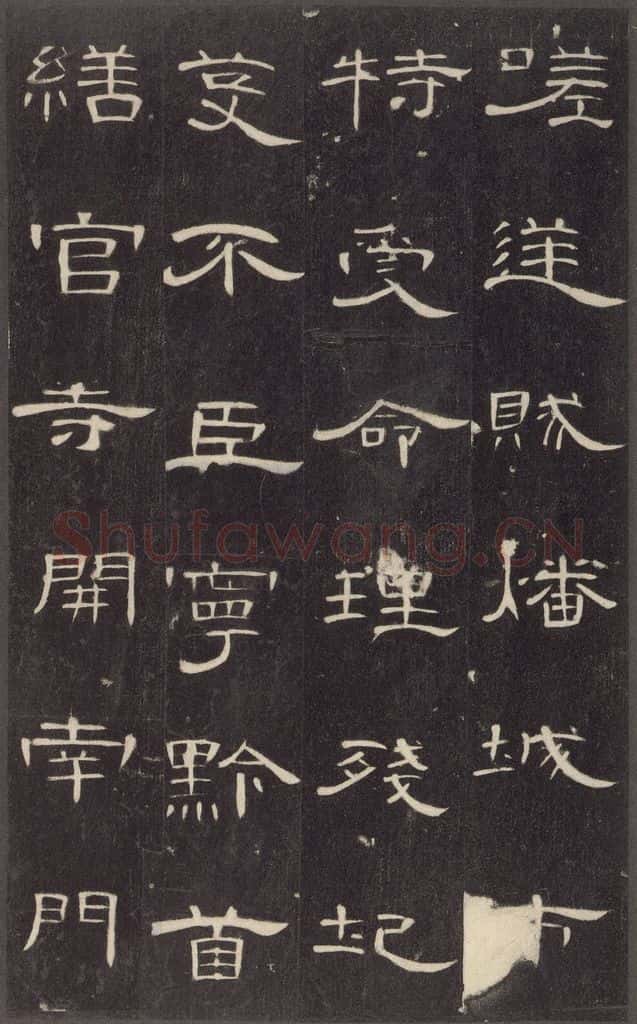 嗟逆賊燔城市
特受命理殘圮
芟不臣寧黔首
繕官寺開南門
Shufawang.CN